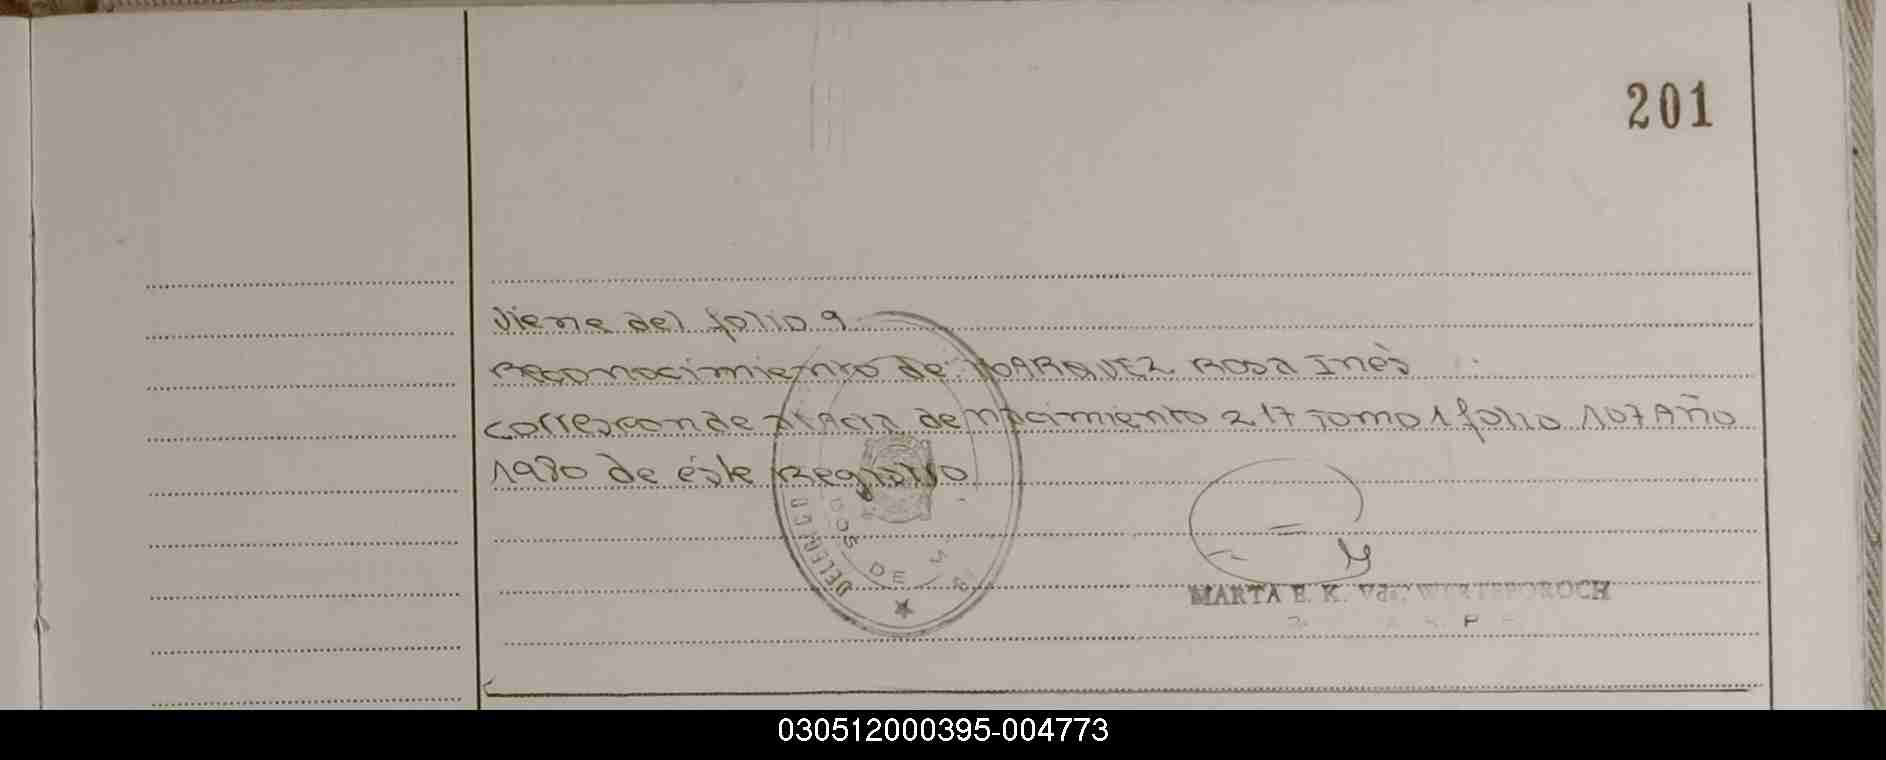 201
viene del folio 9
Reconocimiento de: MARQUEZ Rosa Inès
corresponde al Acta de Nacimiento 217 Tomo 1 folio 107 Año
1980 de éste Registro
DELEGACI
DOS DE
MARTA E. K. Vda.
030512000395-004773